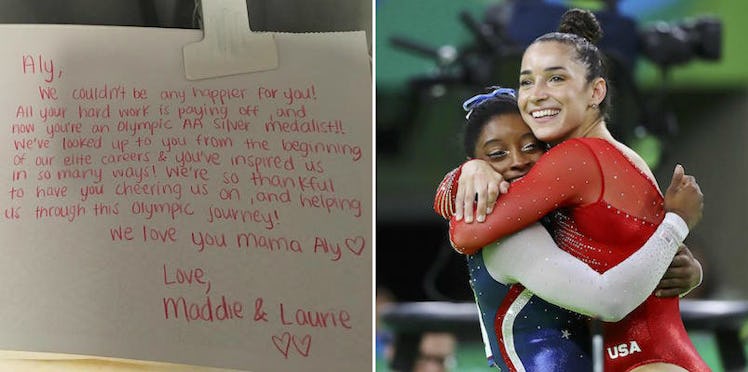 Aly,
We couldn't be any happier for you!
All your hard work is paying off, and
now you're an Olympic AA silver medalist!!
We've looked up to you from the beginning
of our elite careers & you've inspired us
in so many ways! We're so thankful
to have you cheering us on, and helping
us through this Olympic journey!
We love you mama Aly♡
Love,
Maddie & Laurie
♡♡
USA